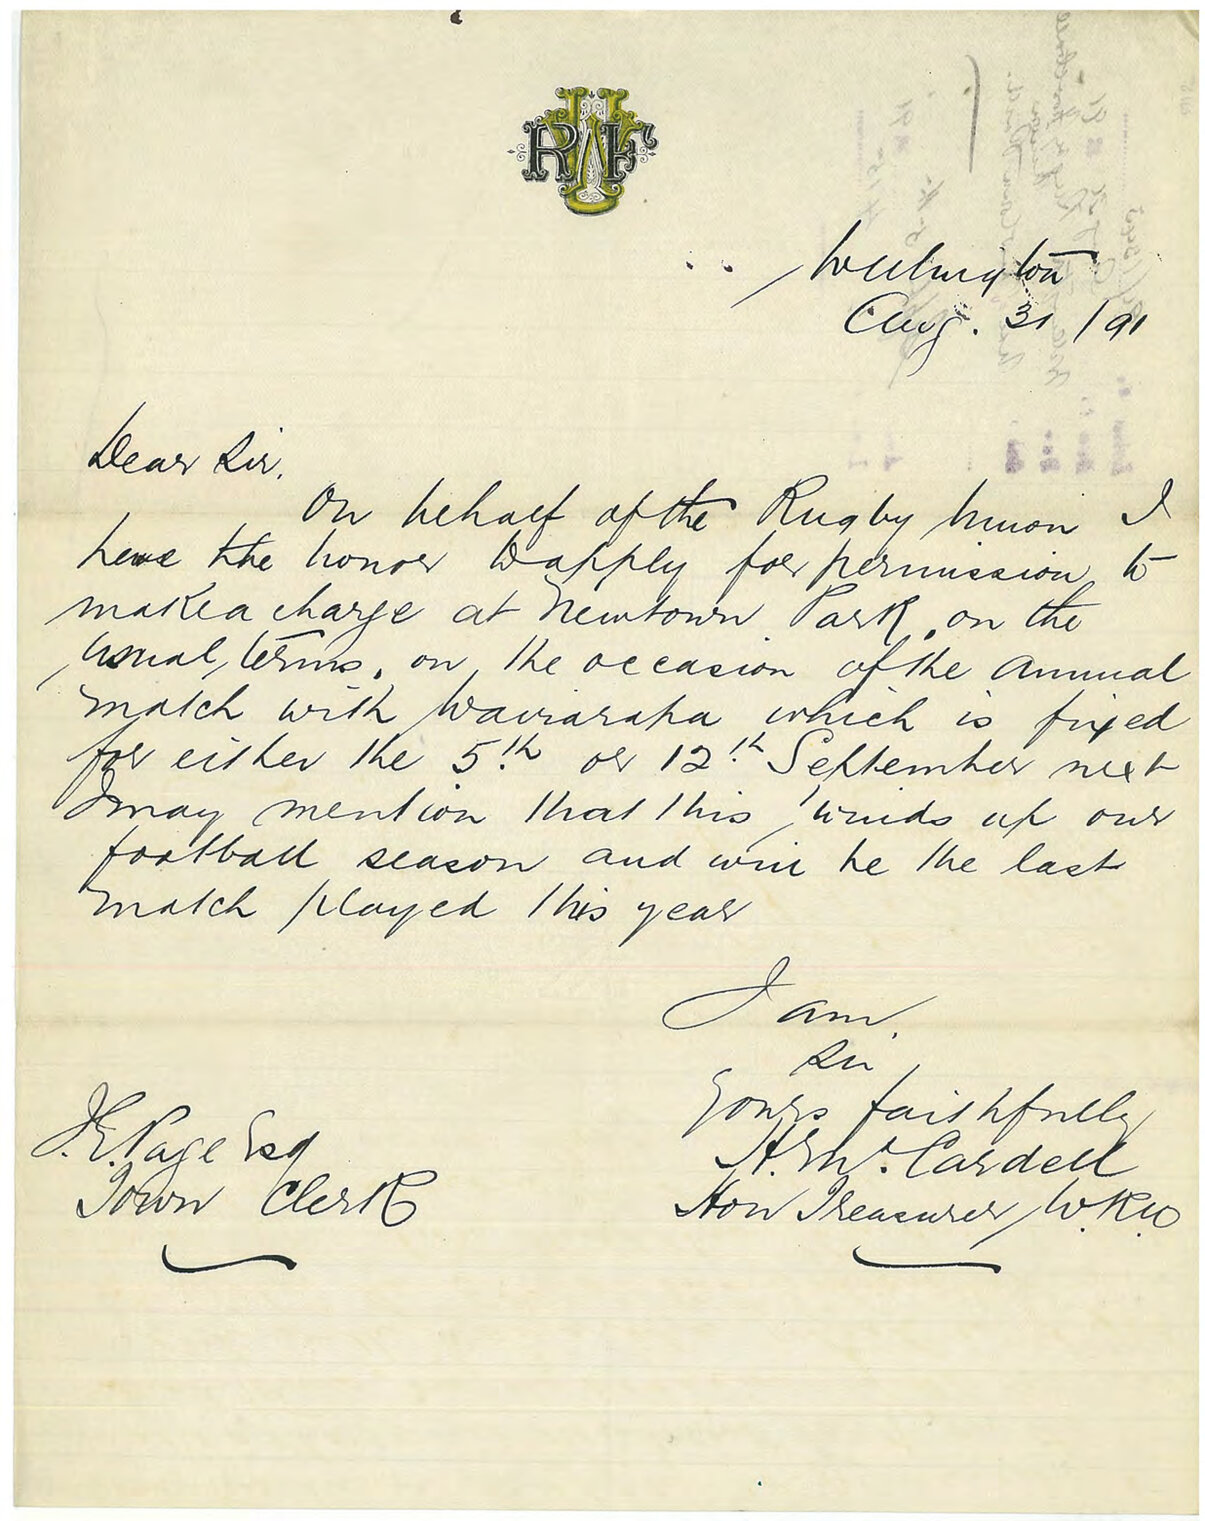 Wellington
Aug. 31 /91
Dear Sir,
On behalf of the Rugby Union I
have the honor to apply for permission to
make a charge at Newtown Park, on the
usual terms, on the occasion of the annual
match with Wairarapa which is fixed
for either the 5th or 12th September next
I may mention that this winds up our
football season and will be the last
match played this year
I am,
Sir,
Yours faithfully
Cardell
Hon Treasurer W.R.U
J.E. Page Esq
Town Clerk